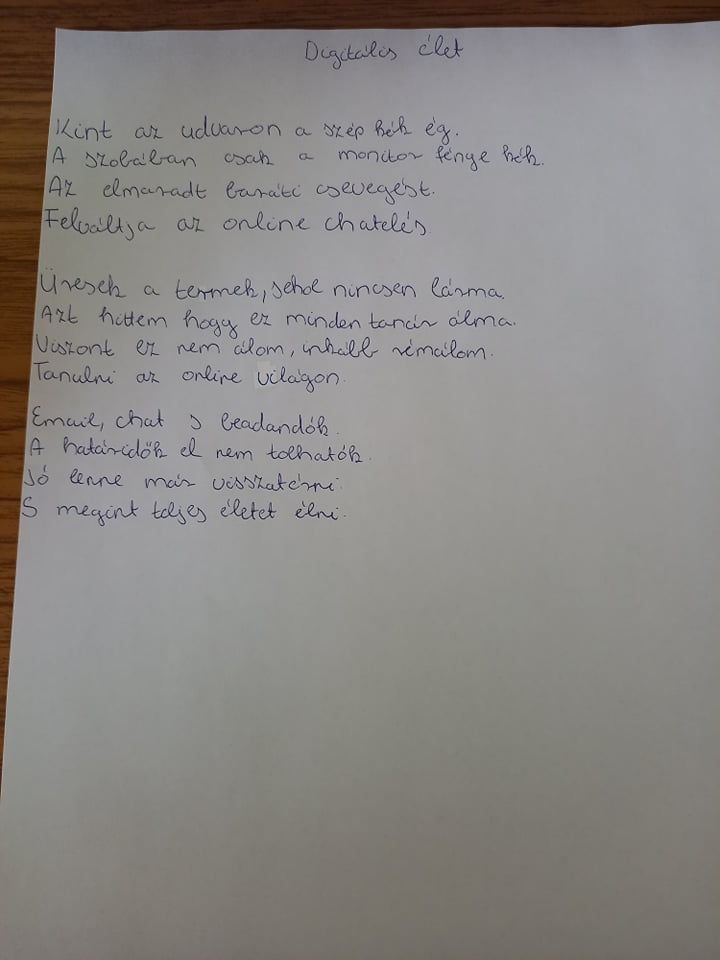 Digitális élet
Kint az udvaron a szép kék ég.
A szobában csak a monitor fénye kék.
Az elmaradt baráti csevegést.
Felváltja az online chatelés.
Üresek a termek, sehol nincsen lárma.
Azt hittem hogy ez minden tanár álma.
Viszont ez nem álom, inkább rémálom.
Tanulni az online világon.
Email, chat s beadandók.
A határidők el nem tolhatók.
Jó lenne már visszatérni.
S megint teljes életet élni.